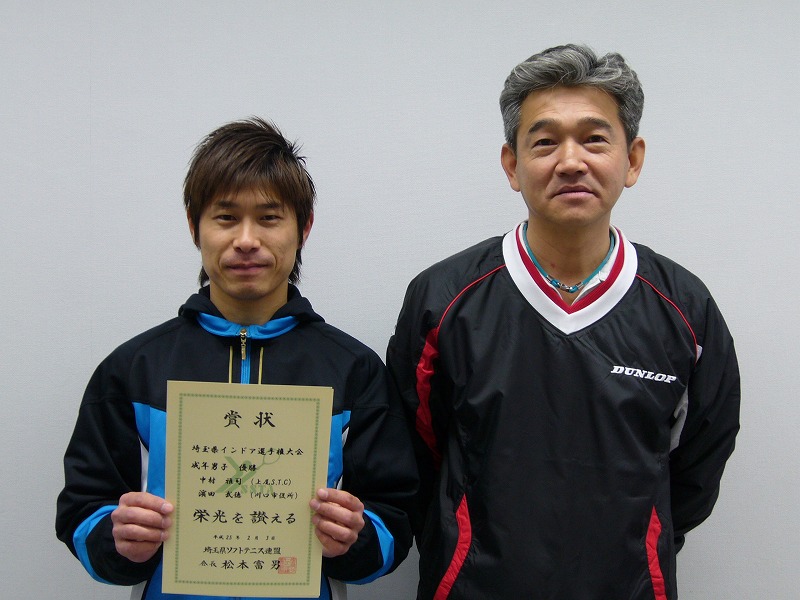 賞状
埼玉県インドア選手権大会
成年男子 優勝
中村 禎司 (上尾S.T.C)
濱田 武徳 (川口市役所)
栄光を讃える
平成25年 2月
埼玉県ソフトテニス連盟
会長 松本富男
DUNLOP